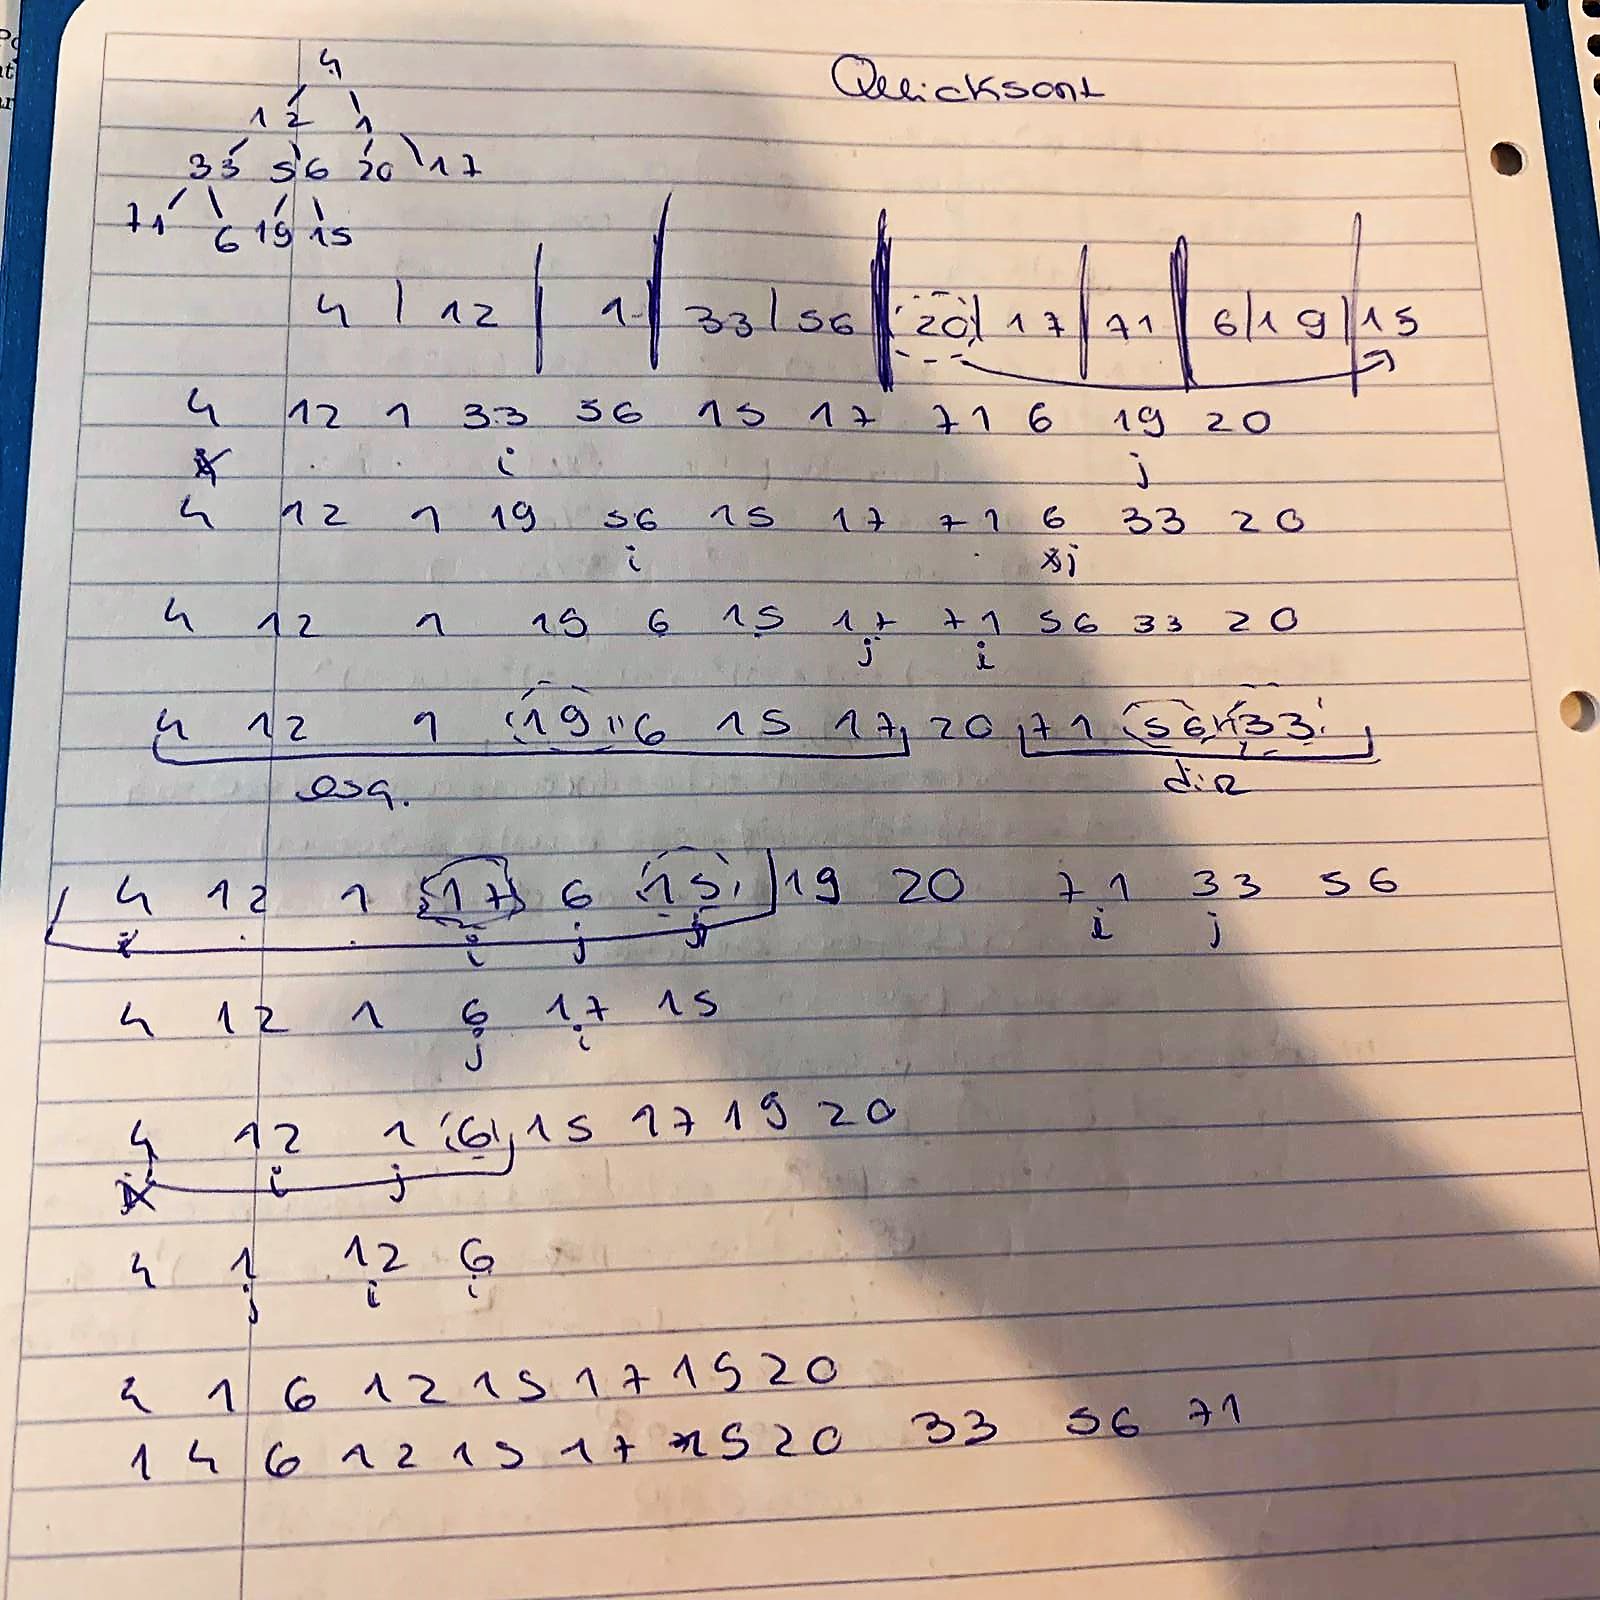 Quicksort
4
12 1
33 56 20 17
71 6 19 15
4 | 12 | 1 | 33 | 56 | 20 | 17 | 71 | 6 | 19 | 15
4 12 1 33 56 15 17 71 6 19 20
i j
4 12 1 19 56 15 17 71 6 33 20
i j
4 12 1 19 6 15 17 71 56 33 20
j i
4 12 1 19 6 15 17 20 71 56 33
esq. dir
4 12 1 17 6 15 19 20 71 33 56
i i j j i j
4 12 1 6 17 15
j i
4 12 1 6 15 17 19 20
i j
4 1 12 6
j i i
4 1 6 12 15 17 19 20
1 4 6 12 15 17 19 20 33 56 71